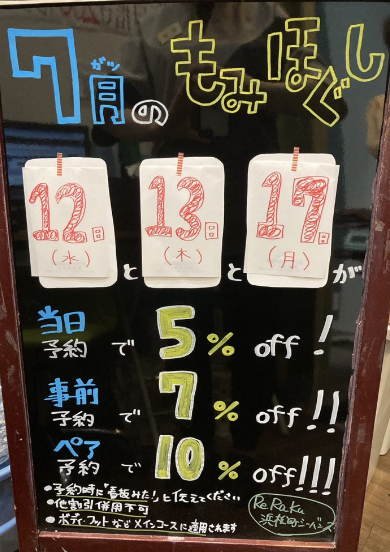 7月のもみほぐし
ガツ
12日 13日 17日
(水)と(木)と(月)が
当日予約で5%off!
事前予約で7%off!!
ペア予約で10%off!!!
●予約時に「看板みた!」と伝えてください
●他割引併用不可
●ボディ・フットなどメインコースに適用されます
ReRaku
浜松町シーバンス